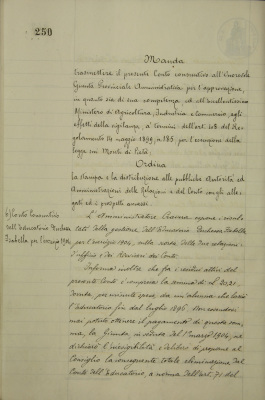 250
Manda
trasmettersi il presente Conto consuntivo all'Onorevole
Giunta Provinciale Amministrativa per l'approvazione,
in quanto sia di sua competenza, ed all'Eccellentissimo
Ministero di Agricoltura, Industria e Commercio, agli
effetti della vigilanza, a termini dell'art. 103 del Re-
golamento 14 maggio 1899, n. 185, per l'esecuzione della
legge sui Monti di Pietà;
Ordina
la stampa e la distribuzione alle pubbliche Autorità ed
Amministrazioni delle Relazioni e del Conto cogli alle-
gati ed i prospetti annessi.
Conto Consuntivo
dell'Educatorio Duchessa
Isabella per l'esercizio 1904.
L'Amministratore espone i risul-
tati della gestione dell'Educatorio Duchessa Isabella
per l'esercizio 1904, sulla scorta delle due relazioni
d'ufficio e dei Revisori dei Conti.
Informa inoltre che fra i residui attivi del
presente Conto è compresa la somma di
dovuta per da un'alunna che lasciò
l'Educatorio fin dal luglio 1896. Non essendosi
mai potuto ottenere il pagamento di questa som-
ma, la Giunta, in seduta del 1° marzo 1904, ne
dichiarò l'inesigibilità, e deliberò di proporne al
Consiglio la conseguente totale eliminazione dal
Conto dell'Educatorio, a norma dell'art. 71 del